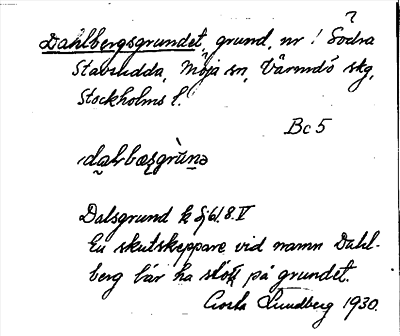 Dahlbergsgrundet, grund, nr! Södra
Stavsudda, Möja sn, Värmdö skg,
Stockholms l.
Bc 5
Dalsgrund k Sj 61.8.V
En skutskeppare vid namn Dahl-
berg lär ha stött på grundet.
Gösta Lundberg 1930.